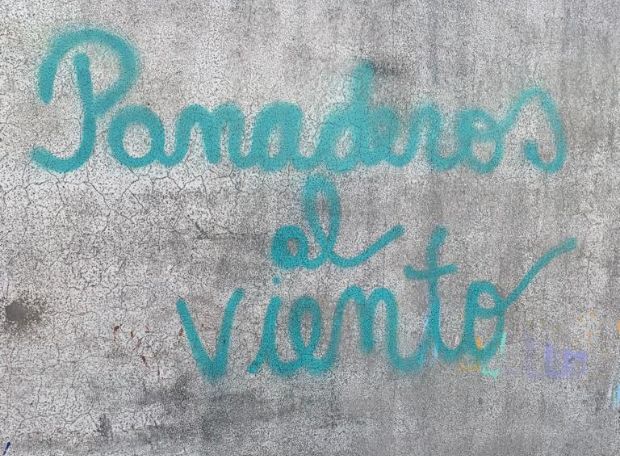 Panaderos
al
viento